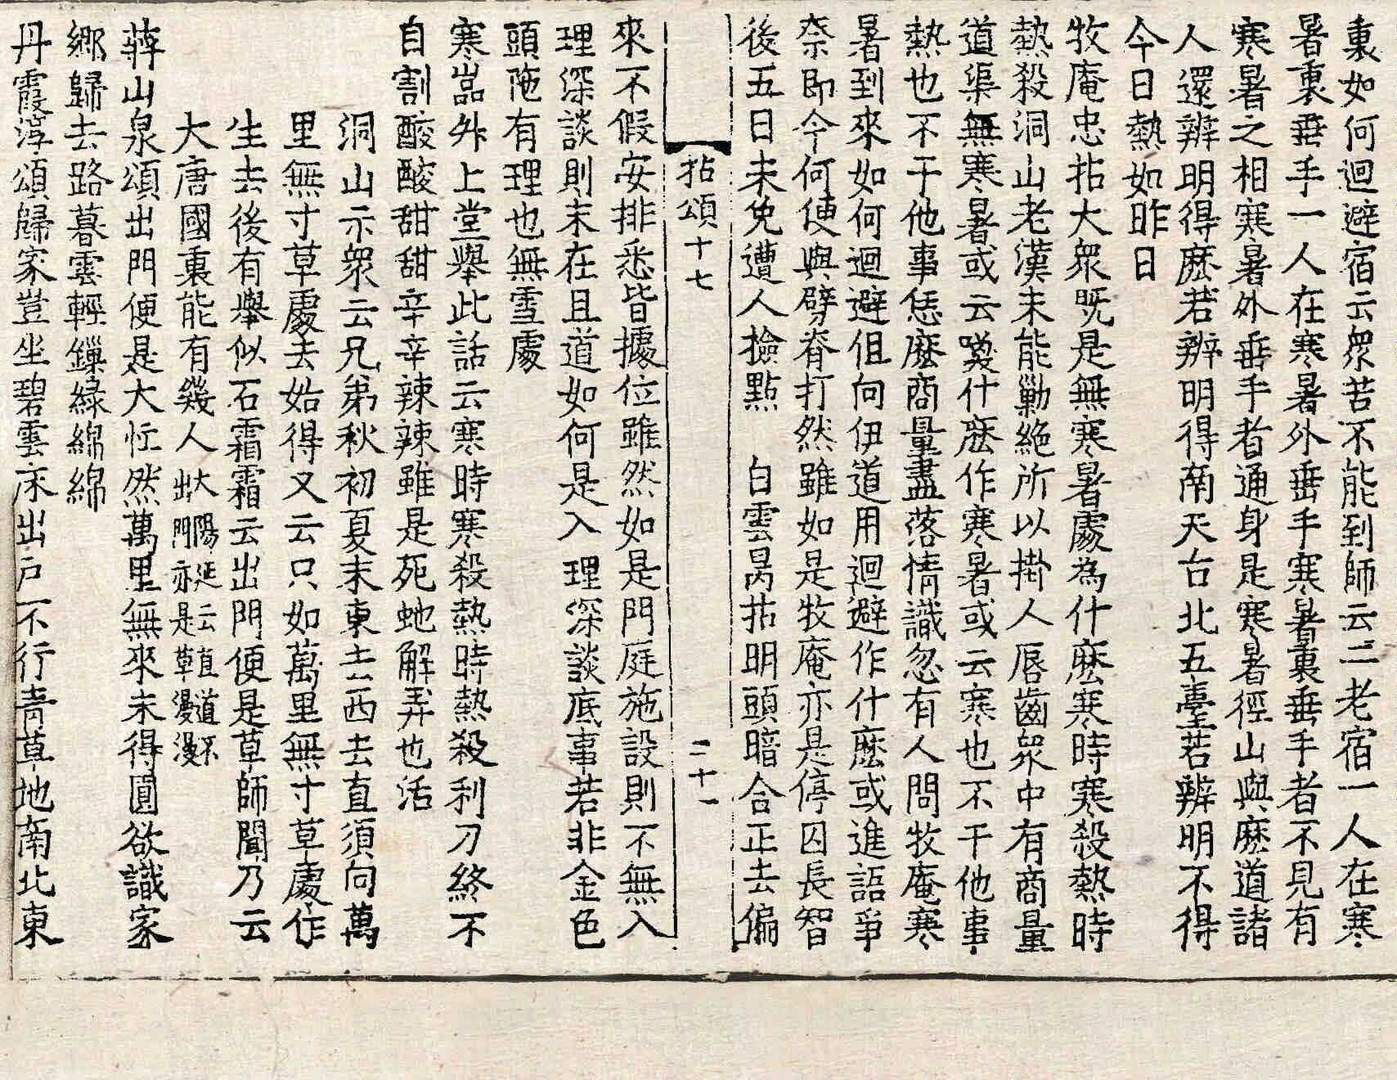 裏如何迴避宿云眾苦不能到師云二老宿一人在寒
暑裏垂手一人在寒暑外垂手寒暑裏垂手者不見有
寒暑之相寒暑外垂手者通身是寒暑徑山與麽道諸
人還辨明得麽若辨明得南天台北五臺若辨明不得
今日熱如昨日
牧庵忠拈大眾旣是無寒暑處為什麽寒時寒殺熱時
熱殺洞山老漢未能勦絶所以掛人唇齒眾中有商量
道渠無寒暑或云喚什麽作寒暑或云寒也不干他事
熱也不干他事恁麽商量盡落情識忽有人問牧庵寒
暑到來如何迴避伹向伊道用迴避作什麽或進語爭
奈即今何便與劈脊打然雖如是牧庵亦是停囚長智
後五日未免遭人撿點 白雲昺拈明頭暗合正去偏
拈頌十七 二十一
來不假安排悉皆據位雖然如是門庭施設則不無入
理深談則未在且道如何是入理深談底事若非金色
頭陁有理也無雪處
寒嵓外上堂舉此話云寒時寒殺熱時熱殺利刀終不
自割酸酸甜甜辛辛辣辣雖是死虵解弄也活
洞山示眾云兄弟秋初夏末東去西去直須向萬
里無寸草處去始得又云只如萬里無寸草處作
生去後有舉似石霜霜云出門便是草師聞乃云
大唐國裏能有幾人大陽延云直道不出門亦是草漫漫
蔣山泉頌出門便是大忙然萬里無來未得圓欲識家
鄉歸去路暮雲輕鏁綠綿綿
丹霞淳頌歸家豈坐碧雲床出戶不行青草地南北東